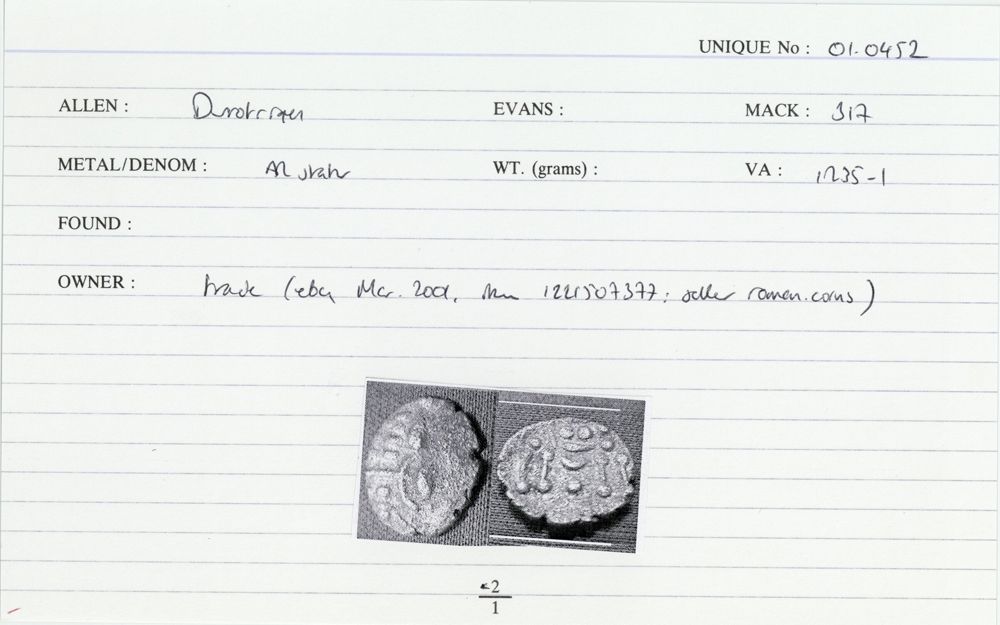 UNIQUE No : 01.0452
ALLEN : Durotrigan EVANS : MACK : 317
METAL/DENOM : AR stater WT. (grams) : VA : 1235-1
FOUND :
OWNER : trade (ebay Mar. 2001, item 1221507377: seller roman.coins)
2
1